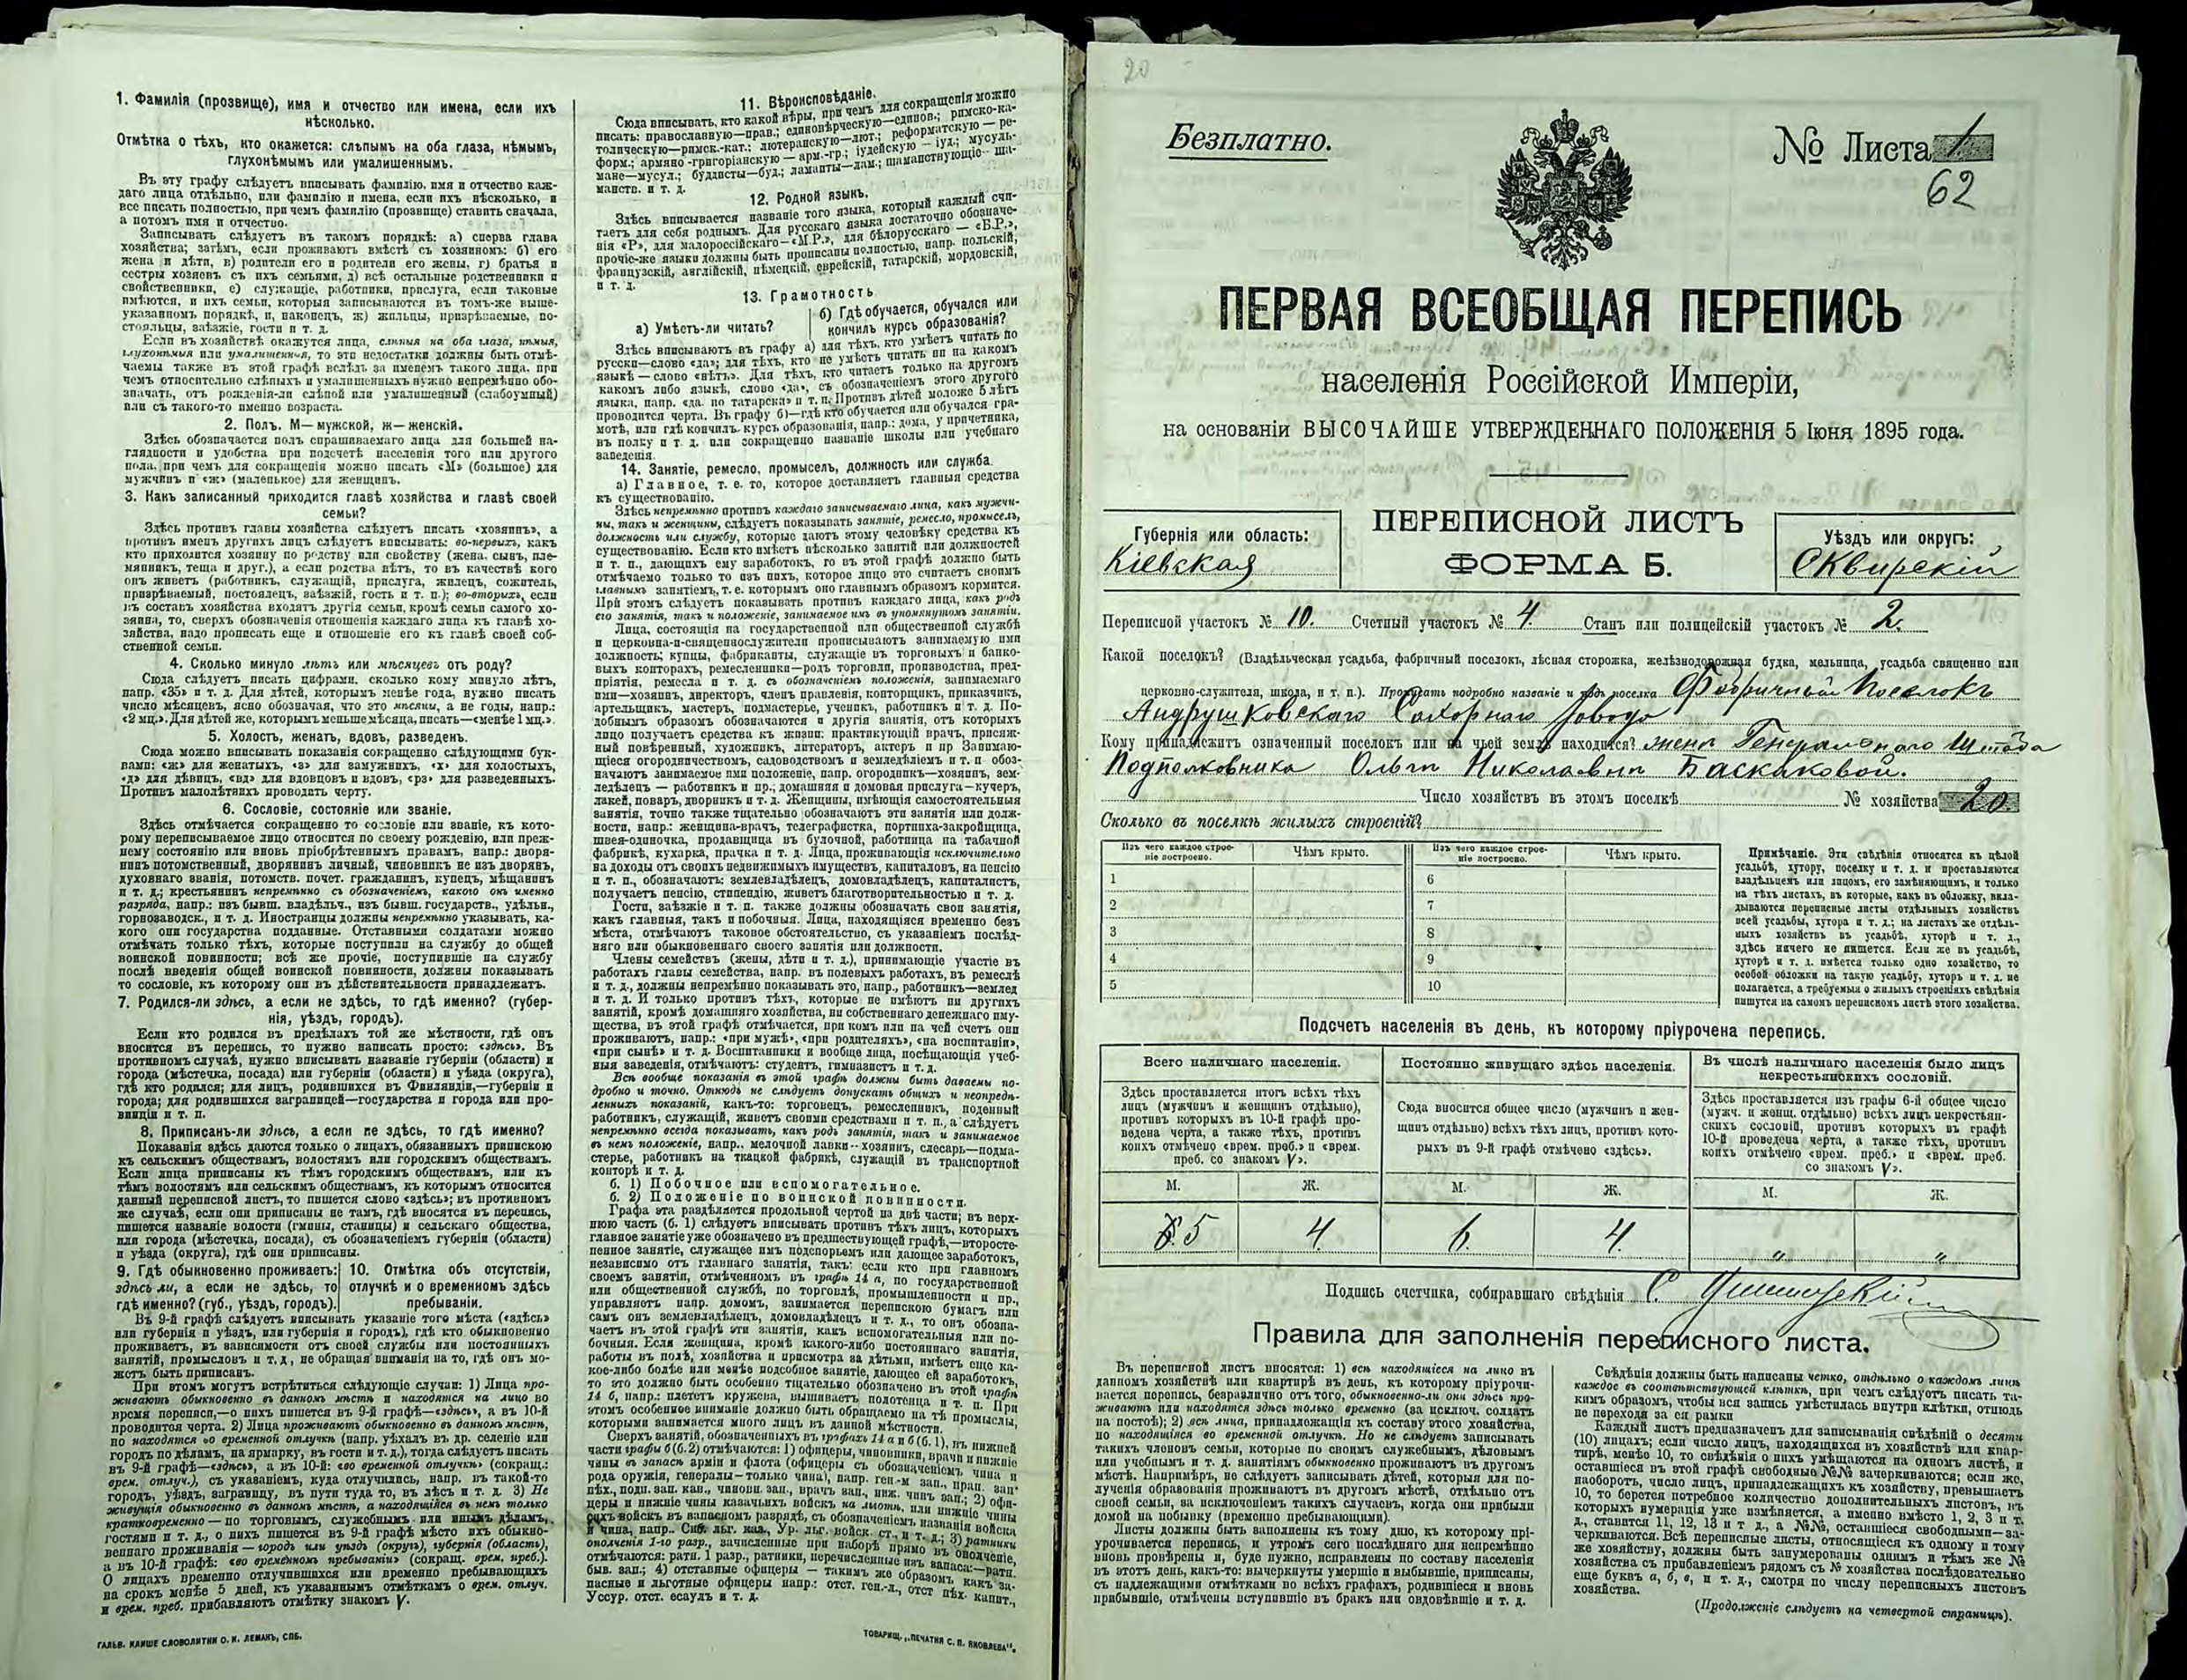 1. Фамилія (прозвище), имя и отчество или имена, если ихъ
нѣсколько.
Отмѣтка о тѣхъ, кто окажется: слѣпымъ на оба глаза, нѣмымъ,
глухонѣмымъ или умалишеннымъ.
Въ эту графу слѣдуетъ вписывать фамилію, имя и отчество каж-
даго лица отдѣльно, или фамилію и имена, если ихъ нѣсколько, и
все писать полностью, при чемъ фамилію (прозвище) ставить сначала,
а потомъ имя и отчество.
Записывать слѣдуетъ въ такомъ порядкѣ: а) сперва глава
хозяйства; затѣмъ, если проживаютъ вмѣстѣ съ хозяиномъ: б) его
жена и дѣти, в) родители его и родители его жены, г) братья и
сестры хозяевъ съ ихъ семьями, д) всѣ остальные родственники и
свойственники, е) служащіе, работники, прислуга, если таковые
имѣются, и ихъ семьи, которыя записываются въ томъ-же выше-
указанномъ порядкѣ, и, наконецъ, ж) жильцы, призрѣваемые, по-
стояльцы, заѣзжіе, гости и т. д.
Если въ хозяйствѣ окажутся лица, слѣпыя на оба глаза, нѣмыя,
глухонѣмыя или умалишенныя, то эти недостатки должны быть отмѣ-
чаемы также въ этой графѣ вслѣдъ за именемъ такого лица, при
чемъ относительно слѣпыхъ и умалишенныхъ нужно непремѣнно обо-
значать, отъ рожденія-ли слѣпой или умалишенный (слабоумный)
или съ такого-то именно возраста.
2. Полъ. М—мужской, ж—женскій.
Здѣсь обозначается полъ спрашиваемаго лица для большей на-
глядности и удобства при подсчетѣ населенія того или другого
пола, при чемъ для сокращенія можно писать «М» (большое) для
мужчинъ и «ж» (маленькое) для женщинъ.
3. Какъ записанный приходится главѣ хозяйства и главѣ своей
семьи?
Здѣсь противъ главы хозяйства слѣдуетъ писать «хозяинъ», а
противъ именъ другихъ лицъ слѣдуетъ вписывать: во-первыхъ, какъ
кто приходится хозяину по родству или свойству (жена, сынъ, пле-
мянникъ, теща и друг.), а если родства нѣтъ, то въ качествѣ кого
онъ живетъ (работникъ, служащій, прислуга, жилецъ, сожитель,
призрѣваемый, постоялецъ, заѣзжій, гость и т. п.); во-вторыхъ, если
въ составъ хозяйства входятъ другія семьи, кромѣ семьи самого хо-
зяина, то, сверхъ обозначенія отношенія каждаго лица къ главѣ хо-
зяйства, надо прописать еще и отношеніе его къ главѣ своей соб-
ственной семьи.
4. Сколько минуло лѣтъ или мѣсяцевъ отъ роду?
Сюда слѣдуетъ писать цифрами, сколько кому минуло лѣтъ,
напр. «35» и т. д. Для дѣтей, которымъ менѣе года, нужно писать
число мѣсяцевъ, ясно обозначая, что это мѣсяцы, а не годы, напр.:
«2 мц.». Для дѣтей же, которымъ меньше мѣсяца, писать—«менѣе 1 мц.».
5. Холостъ, женатъ, вдовъ, разведенъ.
Сюда можно вписывать показанія сокращенно слѣдующими бук-
вами: «ж» для женатыхъ, «з» для замужнихъ, «х» для холостыхъ,
«д» для дѣвицъ, «вд» для вдовцовъ и вдовъ, «рз» для разведенныхъ.
Противъ малолѣтнихъ проводить черту.
6. Сословіе, состояніе или званіе.
Здѣсь отмѣчается сокращенно то сословіе или званіе, къ кото-
рому переписываемое лицо относится по своему рожденію, или преж-
нему состоянію или вновь пріобрѣтеннымъ правамъ, напр.: дворя-
нинъ потомственный, дворянинъ личный, чиновникъ не изъ дворянъ,
духовнаго званія, потомств. почет. гражданинъ, купецъ, мѣщанинъ
и т. д.; крестьянинъ непремѣнно съ обозначеніемъ, какого онъ именно
разряда, напр.: изъ бывш. владѣльч., изъ бывш. государств., удѣльн.,
горнозаводск., и т. д. Иностранцы должны непремѣнно указывать, ка-
кого они государства подданные. Отставными солдатами можно
отмѣчать только тѣхъ, которые поступили на службу до общей
воинской повинности; всѣ же прочіе, поступившіе на службу
послѣ введенія общей воинской повинности, должны показывать
то сословіе, къ которому они въ дѣйствительности принадлежатъ.
7. Родился-ли здѣсь, а если не здѣсь, то гдѣ именно? (губер-
нія, уѣздъ, городъ).
Если кто родился въ предѣлахъ той же мѣстности, гдѣ онъ
вносится въ перепись, то нужно написать просто: «здѣсь». Въ
противномъ случаѣ, нужно вписывать названіе губерніи (области) и
города (мѣстечка, посада) или губерніи (области) и уѣзда (округа),
гдѣ кто родился; для лицъ, родившихся въ Финляндіи,—губерніи и
города; для родившихся заграницей—государства и города или про-
винціи и т. п.
8. Приписанъ-ли здѣсь, а если не здѣсь, то гдѣ именно?
Показанія здѣсь даются только о лицахъ, обязанныхъ припискою
къ сельскимъ обществамъ, волостямъ или городскимъ обществамъ.
Если лица приписаны къ тѣмъ городскимъ обществамъ, или къ
тѣмъ волостямъ или сельскимъ обществамъ, къ которымъ относится
данный переписной листъ, то пишется слово «здѣсь»; въ противномъ
же случаѣ, если они приписаны не тамъ, гдѣ вносятся въ перепись,
пишется названіе волости (гмины, станицы) и сельскаго общества,
или города (мѣстечка, посада), съ обозначеніемъ губерніи (области)
и уѣзда (округа), гдѣ они приписаны.
9. Гдѣ обыкновенно проживаетъ:
здѣсь ли, а если не здѣсь, то
гдѣ именно? (губ., уѣздъ, городъ).
10. Отмѣтка объ отсутствіи,
отлучкѣ и о временномъ здѣсь
пребываніи.
Въ 9-й графѣ слѣдуетъ вписывать указаніе того мѣста («здѣсь»
или губернія и уѣздъ, или губернія и городъ), гдѣ кто обыкновенно
проживаетъ, въ зависимости отъ своей службы или постоянныхъ
занятій, промысловъ и т. д., не обращая вниманія на то, гдѣ онъ мо-
жетъ быть приписанъ.
При этомъ могутъ встрѣтиться слѣдующіе случаи: 1) Лица про-
живаютъ обыкновенно въ данномъ мѣстѣ и находятся на лицо во
время переписи,—о нихъ пишется въ 9-й графѣ—«здѣсь», а въ 10-й
проводится черта. 2) Лица проживаютъ обыкновенно въ данномъ мѣстѣ,
но находятся во временной отлучкѣ (напр. уѣхалъ въ др. селеніе или
городъ по дѣламъ, на ярмарку, въ гости и т. д.), тогда слѣдуетъ писать
въ 9-й графѣ—«здѣсь», а въ 10-й: «во временной отлучкѣ» (сокращ.:
врем. отлуч.), съ указаніемъ, куда отлучились, напр. въ такой-то
городъ, уѣздъ, заграницу, въ пути туда то, въ лѣсъ и т. д. 3) Не
живущія обыкновенно въ данномъ мѣстѣ, а находящіяся въ немъ только
кратковременно — по торговымъ, служебнымъ или инымъ дѣламъ,
гостями и т. д., о нихъ пишется въ 9-й графѣ мѣсто ихъ обыкно-
веннаго проживанія — городъ или уѣздъ (округъ), губернія (область),
а въ 10-й графѣ: «во временномъ пребываніи» (сокращ. врем. преб.).
О лицахъ временно отлучившихся или временно пребывающихъ
на срокъ менѣе 5 дней, къ указаннымъ отмѣткамъ о врем. отлуч.
и врем. преб. прибавляютъ отмѣтку знакомъ V.
ГАЛЬВ. КЛИШЕ СЛОВОЛИТНИ О. И. ЛЕМАНЪ, СПБ.
11. Вѣроисповѣданіе.
Сюда вписывать, кто какой вѣры, при чемъ для сокращенія можно
писать: православную—прав.; единовѣрческую—единов.; римско-ка-
толическую—римск.-кат.; лютеранскую—лют.; реформатскую — ре-
форм.; армяно-григоріанскую — арм.-гр.; іудейскую — іуд.; мусуль-
мане—мусул.; буддисты—буд.; ламаиты—лам.; шаманствующіе—ша-
манств. и т. д.
12. Родной языкъ.
Здѣсь вписывается названіе того языка, который каждый счи-
таетъ для себя роднымъ. Для русскаго языка достаточно обозначе-
нія «Р», для малороссійскаго—«М.Р.», для бѣлорусскаго — «Б.Р.»,
прочіе-же языки должны быть прописаны полностью, напр. польскій,
французскій, англійскій, нѣмецкій, еврейскій, татарскій, мордовскій,
и т. д.
13. Грамотность
а) Умѣетъ-ли читать?
б) Гдѣ обучается, обучался или
кончилъ курсъ образованія?
Здѣсь вписываютъ въ графу а) для тѣхъ, кто умѣетъ читать по
русски—слово «да»; для тѣхъ, кто не умѣетъ читать ни на какомъ
языкѣ — слово «нѣтъ». Для тѣхъ, кто читаетъ только на другомъ
какомъ либо языкѣ, слово «да», съ обозначеніемъ этого другого
языка, напр. «да. по татарски» и т. п. Противъ дѣтей моложе 5 лѣтъ
проводится черта. Въ графу б)—гдѣ кто обучается или обучался гра-
мотѣ, или гдѣ кончилъ курсъ образованія, напр.: дома, у причетника,
въ полку и т. д. или сокращенно названіе школы или учебнаго
заведенія.
14. Занятіе, ремесло, промыселъ, должность или служба.
а) Главное, т. е. то, которое доставляетъ главныя средства
къ существованію.
Здѣсь непремѣнно противъ каждаго записываемаго лица, какъ мужчи-
ны, такъ и женщины, слѣдуетъ показывать занятіе, ремесло, промыселъ,
должность или службу, которые даютъ этому человѣку средства къ
существованію. Если кто имѣетъ нѣсколько занятій или должностей
и т. п., дающихъ ему заработокъ, то въ этой графѣ должно быть
отмѣчаемо только то изъ нихъ, которое лицо это считаетъ своимъ
главнымъ занятіемъ, т. е. которымъ оно главнымъ образомъ кормится.
При этомъ слѣдуетъ показывать противъ каждаго лица, какъ родъ
его занятія, такъ и положеніе, занимаемое имъ въ упомянутомъ занятіи.
Лица, состоящія на государственной или общественной службѣ
и церковно-и-священнослужители прописываютъ занимаемую ими
должность; купцы, фабриканты, служащіе въ торговыхъ и банко-
выхъ конторахъ, ремесленники—родъ торговли, производства, пред-
пріятія, ремесла и т. д. съ обозначеніемъ положенія, занимаемаго
ими—хозяинъ, директоръ, членъ правленія, конторщикъ, приказчикъ,
артельщикъ, мастеръ, подмастерье, ученикъ, работникъ и т. д. По-
добнымъ образомъ обозначаются и другія занятія, отъ которыхъ
лицо получаетъ средства къ жизни: практикующій врачъ, присяж-
ный повѣренный, художникъ, литераторъ, актеръ и пр. Занимаю-
щіеся огородничествомъ, садоводствомъ и земледѣліемъ и т. п. обоз-
начаютъ занимаемое ими положеніе, напр. огородникъ—хозяинъ, зем-
ледѣлецъ — работникъ и пр.; домашняя и домовая прислуга—кучеръ,
лакей, поваръ, дворникъ и т. д. Женщины, имѣющія самостоятельныя
занятія, точно также тщательно обозначаютъ эти занятія или долж-
ности, напр.: женщина-врачъ, телеграфистка, портниха-закройщица,
швея-одиночка, продавщица въ булочной, работница на табачной
фабрикѣ, кухарка, прачка и т. д. Лица, проживающія исключительно
на доходы отъ своихъ недвижимыхъ имуществъ, капиталовъ, на пенсію
и т. п., обозначаютъ: землевладѣлецъ, домовладѣлецъ, капиталистъ,
получаетъ пенсію, стипендію, живетъ благотворительностью и т. д.
Гости, заѣзжіе и т. п. также должны обозначать свои занятія,
какъ главныя, такъ и побочныя. Лица, находящіяся временно безъ
мѣста, отмѣчаютъ таковое обстоятельство, съ указаніемъ послѣд-
няго или обыкновеннаго своего занятія или должности.
Члены семействъ (жены, дѣти и т. д.), принимающіе участіе въ
работахъ главы семейства, напр. въ полевыхъ работахъ, въ ремеслѣ
и т. д., должны непремѣнно показывать это, напр., работникъ—землед
и т. д. И только противъ тѣхъ, которые не имѣютъ ни другихъ
занятій, кромѣ домашняго хозяйства, ни собственнаго денежнаго иму-
щества, въ этой графѣ отмѣчается, при комъ или на чей счетъ они
проживаютъ, напр.: «при мужѣ», «при родителяхъ», «на воспитаніи»,
«при сынѣ» и т. д. Воспитанники и вообще лица, посѣщающія учеб-
ныя заведенія, отмѣчаютъ: студентъ, гимназистъ и т. д.
Всѣ вообще показанія въ этой графѣ должны быть даваемы по-
дробно и точно. Отнюдь не слѣдуетъ допускать общихъ и неопредѣ-
ленныхъ показаній, какъ-то: торговецъ, ремесленникъ, поденный
работникъ, служащій, живетъ своими средствами и т. п., а слѣдуетъ
непремѣнно всегда показывать, какъ родъ занятія, такъ и занимаемое
въ немъ положеніе, напр., мелочной лавки--хозяинъ, слесарь—подма-
стерье, работникъ на ткацкой фабрикѣ, служащій въ транспортной
конторѣ и т. д.
б. 1) Побочное или вспомогательное.
б. 2) Положеніе по воинской повинности.
Графа эта раздѣляется продольной чертой на двѣ части; въ верх-
нюю часть (б. 1) слѣдуетъ вписывать противъ тѣхъ лицъ, которыхъ
главное занятіе уже обозначено въ предшествующей графѣ,—второсте-
пенное занятіе, служащее имъ подспорьемъ или дающее заработокъ,
независимо отъ главнаго занятія, такъ: если кто при главномъ
своемъ занятіи, отмѣченномъ въ графѣ 14 а, по государственной
или общественной службѣ, по торговлѣ, промышленности и пр.,
управляетъ напр. домомъ, занимается перепискою бумагъ или
самъ онъ землевладѣлецъ, домовладѣлецъ и т. д., то онъ обозна-
чаетъ въ этой графѣ эти занятія, какъ вспомогательныя или по-
бочныя. Если женщина, кромѣ какого-либо постояннаго занятія,
работы въ полѣ, хозяйства и присмотра за дѣтьми, имѣетъ еще ка-
кое-либо болѣе или менѣе подсобное занятіе, дающее ей заработокъ,
то это должно быть особенно тщательно обозначено въ этой графѣ
14 б, напр.: плететъ кружева, вышиваетъ полотенца и т. п. При
этомъ особенное вниманіе должно быть обращаемо на тѣ промыслы,
которыми занимается много лицъ въ данной мѣстности.
Сверхъ занятій, обозначенныхъ въ графахъ 14 а и б (б. 1), въ нижней
части графы б (б. 2) отмѣчаются: 1) офицеры, чиновники, врачи и нижніе
чины въ запасѣ арміи и флота (офицеры съ обозначеніемъ чина и
рода оружія, генералы—только чина), напр. ген-м зап., прап. зап
пѣх., подп. зап. кав., чиновн. зап., врачъ зап., ниж. чинъ зап.; 2) офи-
церы и нижніе чины казачьихъ войскъ на льготѣ, или нижніе чины
сихъ войскъ въ запасномъ разрядѣ, съ обозначеніемъ названія войска
и чина, напр. Сиб. льг. каз., Ур. льг. войск. ст., и т. д.; 3) ратники
ополченія 1-го разр., зачисленные при наборѣ прямо въ ополченіе,
отмѣчаются: ратн. 1 разр., ратники, перечисленные изъ запаса:—ратн.
быв. зап.; 4) отставные офицеры — такимъ же образомъ какъ за-
пасные и льготные офицеры напр.: отст. ген.-л., отст пѣх. капит.,
Уссур. отст. есаулъ и т. д.
ТОВАРИЩ. „ПЕЧАТНЯ С. П. ЯКОВЛЕВА".
20
Безплатно.
№ Листа 1
62
ПЕРВАЯ ВСЕОБЩАЯ ПЕРЕПИСЬ
населенія Россійской Имперіи,
на основаніи ВЫСОЧАЙШЕ УТВЕРЖДЕННАГО ПОЛОЖЕНІЯ 5 Іюня 1895 года.
Губернія или область:
Кіевская
ПЕРЕПИСНОЙ ЛИСТЪ
ФОРМА Б.
Уѣздъ или округъ:
Сквирскій
Переписной участокъ № 10. Счетный участокъ № 4. Станъ или полицейскій участокъ № 2.
Какой поселокъ? (Владѣльческая усадьба, фабричный поселокъ, лѣсная сторожка, желѣзнодорожная будка, мельница, усадьба священно или
церковно-служителя, школа, и т. п.). Прописать подробно названіе и родъ поселка Фабричный Поселокъ
Андрушковскаго Сахарнаго Завода
Кому принадлежитъ означенный поселокъ или на чьей землѣ находится? женѣ Генеральнаго Штаба
Подполковника Ольгѣ Николаевнѣ Баскаковой.
Число хозяйствъ въ этомъ поселкѣ № хозяйства 20
Сколько въ поселкѣ жилыхъ строеній?
Изъ чего каждое строе-
ніе построено.
Чѣмъ крыто.
Изъ чего каждое строе-
ніе построено.
Чѣмъ крыто.
1 6
2 7
3 8
4 9
5 10
Примѣчаніе. Эти свѣдѣнія относятся къ цѣлой
усадьбѣ, хутору, поселку и т. д. и проставляются
владѣльцемъ или лицомъ, его замѣняющимъ, и только
на тѣхъ листахъ, въ которые, какъ въ обложку, вкла-
дываются переписные листы отдѣльныхъ хозяйствъ
всей усадьбы, хутора и т. д.; на листахъ же отдѣль-
ныхъ хозяйствъ въ усадьбѣ, хуторѣ и т. д.,
здѣсь ничего не пишется. Если же въ усадьбѣ,
хуторѣ и т. д. имѣется только одно хозяйство, то
особой обложки на такую усадьбу, хуторъ и т. д. не
полагается, а требуемыя о жилыхъ строеніяхъ свѣдѣнія
пишутся на самомъ переписномъ листѣ этого хозяйства.
Подсчетъ населенія въ день, къ которому пріурочена перепись.
Всего наличнаго населенія.
Здѣсь проставляется итогъ всѣхъ тѣхъ
лицъ (мужчинъ и женщинъ отдѣльно),
противъ которыхъ въ 10-й графѣ про-
ведена черта, а также тѣхъ, противъ
коихъ отмѣчено «врем. преб.» и «врем.
преб. со знакомъ V».
Постоянно живущаго здѣсь населенія.
Сюда вносится общее число (мужчинъ и жен-
щинъ отдѣльно) всѣхъ тѣхъ лицъ, противъ кото-
рыхъ въ 9-й графѣ отмѣчено «здѣсь».
Въ числѣ наличнаго населенія было лицъ
некрестьянскихъ сословій.
Здѣсь проставляется изъ графы 6-й общее число
(мужч. и женщ. отдѣльно) всѣхъ лицъ некрестьян-
скихъ сословій, противъ которыхъ въ графѣ
10-й проведена черта, а также тѣхъ, противъ
коихъ отмѣчено «врем. преб.» и «врем. преб.
со знакомъ V».
М. Ж. М. Ж. М. Ж.
5 4. 6. 4. „ „
Подпись счетчика, собиравшаго свѣдѣнія С.
Правила для заполненія переписного листа.
Въ переписной листъ вносятся: 1) всѣ находящіеся на лицо въ
данномъ хозяйствѣ или квартирѣ въ день, къ которому пріурочи-
вается перепись, безразлично отъ того, обыкновенно-ли они здѣсь про-
живаютъ или находятся здѣсь только временно (за исключ. солдатъ
на постоѣ); 2) всѣ лица, принадлежащія къ составу этого хозяйства,
но находящіяся во временной отлучкѣ. Но не слѣдуетъ записывать
такихъ членовъ семьи, которые по своимъ служебнымъ, дѣловымъ
или учебнымъ и т. д. занятіямъ обыкновенно проживаютъ въ другомъ
мѣстѣ. Напримѣръ, не слѣдуетъ записывать дѣтей, которыя для по-
лученія образованія проживаютъ въ другомъ мѣстѣ, отдѣльно отъ
своей семьи, за исключеніемъ такихъ случаевъ, когда они прибыли
домой на побывку (временно пребывающими).
Листы должны быть заполнены къ тому дню, къ которому прі-
урочивается перепись, и утромъ сего послѣдняго дня непремѣнно
вновь провѣрены и, буде нужно, исправлены по составу населенія
въ этотъ день, какъ-то: вычеркнуты умершіе и выбывшіе, приписаны,
съ надлежащими отмѣтками во всѣхъ графахъ, родившіеся и вновь
прибывшіе, отмѣчены вступившіе въ бракъ или овдовѣвшіе и т. д.
Свѣдѣнія должны быть написаны четко, отдѣльно о каждомъ лицѣ
каждое въ соотвѣтствующей клѣткѣ, при чемъ слѣдуетъ писать та-
кимъ образомъ, чтобы вся запись умѣстилась внутри клѣтки, отнюдь
не переходя за ея рамки
Каждый листъ предназначенъ для записыванія свѣдѣній о десяти
(10) лицахъ; если число лицъ, находящихся въ хозяйствѣ или квар-
тирѣ, менѣе 10, то свѣдѣнія о нихъ умѣщаются на одномъ листѣ, и
оставшіеся въ этой графѣ свободные №№ зачеркиваются; если же,
наоборотъ, число лицъ, принадлежащихъ къ хозяйству, превышаетъ
10, то берется потребное количество дополнительныхъ листовъ, въ
которыхъ нумерація уже измѣняется, а именно вмѣсто 1, 2, 3 и т.
д., ставится 11, 12, 13 и т. д., а №№, оставшіеся свободными—за-
черкиваются. Всѣ переписные листы, относящіеся къ одному и тому
же хозяйству, должны быть занумерованы однимъ и тѣмъ же №
хозяйства съ прибавленіемъ рядомъ съ № хозяйства послѣдовательно
еще буквъ а, б, в, и т. д., смотря по числу переписныхъ листовъ
хозяйства.
(Продолженіе слѣдуетъ на четвертой страницѣ).